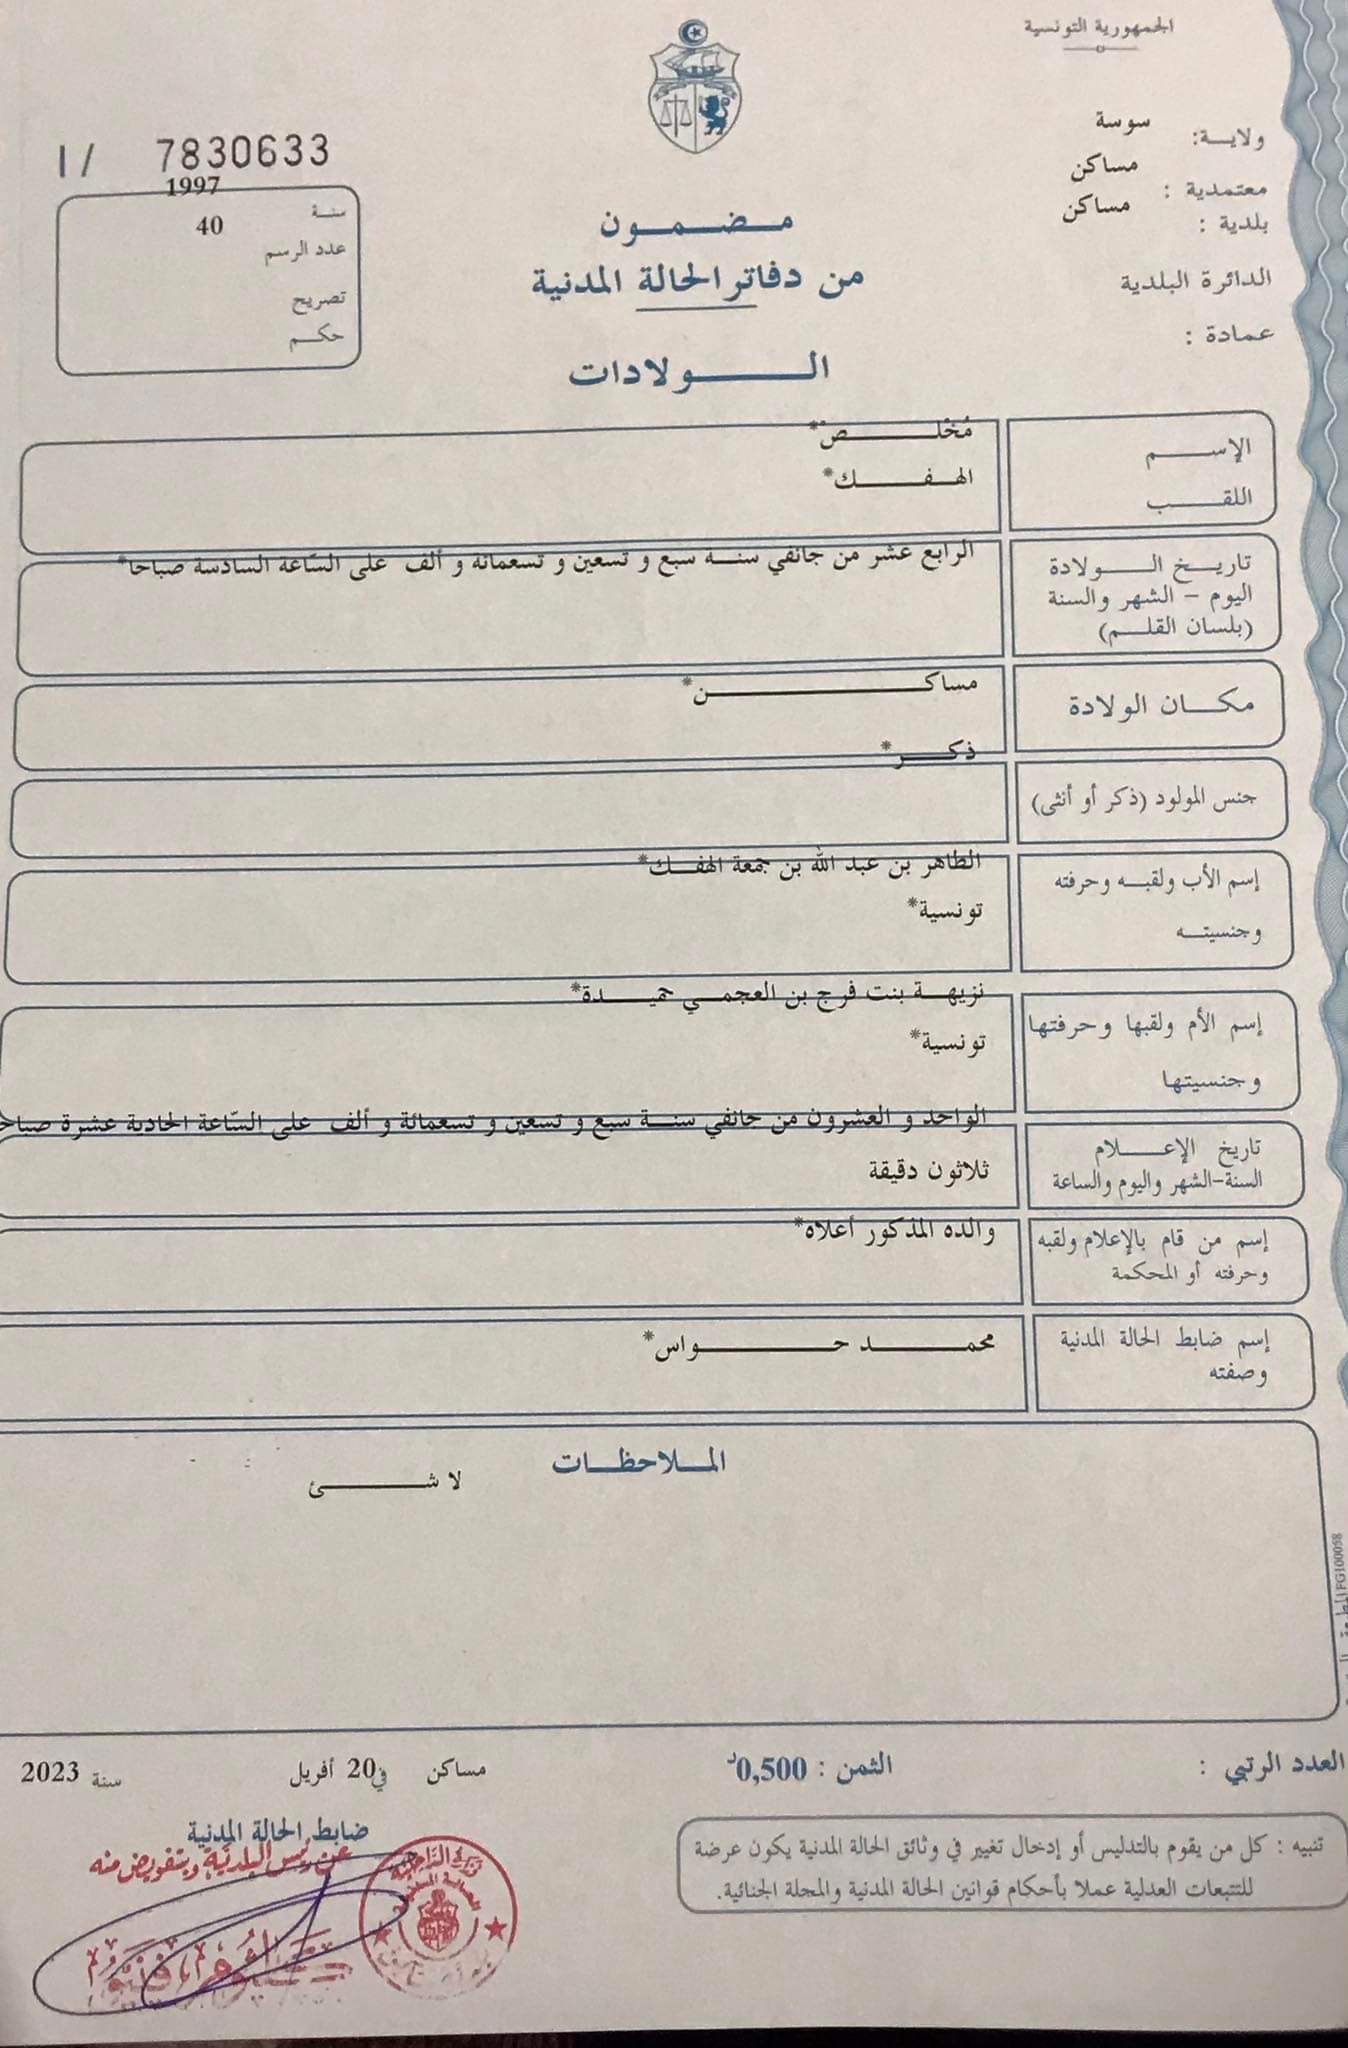 الجمهورية التونسية
ولاية: سوسة
معتمدية : مساكن
بلدية : مساكن
الدائرة البلدية
عمادة :
7830633 / I
سنة 1997
عدد الرسم 40
تصريح
حكم
مضمون
من دفاتر الحالة المدنية
الولادات
الإسم مُخْلص*
اللقب الهفك*
تاريخ الولادة
اليوم – الشهر والسنة
(بلسان القلم)
الرابع عشر من جانفي سنة سبع و تسعين و تسعمائة و ألف على السّاعة السادسة صباحا*
مكان الولادة مساكن*
جنس المولود (ذكر أو أنثى) ذكر*
إسم الأب ولقبه وحرفته
وجنسيته
الطاهر بن عبد الله بن جمعة الهفك*
تونسية*
إسم الأم ولقبها وحرفتها
وجنسيتها
نزيهة بنت فرج بن العجمي حميدة*
تونسية*
تاريخ الإعلام
السنة-الشهر واليوم والساعة
الواحد و العشرون من جانفي سنة سبع و تسعين و تسعمائة و ألف على السّاعة الحادية عشرة صباحا
ثلاثون دقيقة
إسم من قام بالإعلام ولقبه
وحرفته أو المحكمة
والده المذكور أعلاه*
إسم ضابط الحالة المدنية
وصفته
محمد حواس*
الملاحظات
لا شئ
FG100058
العدد الرتبي :
الثمن : 0,500د
مساكن في 20 أفريل سنة 2023
ضابط الحالة المدنية
عن رئيس البلدية وبتفويض منه
تنبيه : كل من يقوم بالتدليس أو إدخال تغيير في وثائق الحالة المدنية يكون عرضة
للتتبعات العدلية عملا بأحكام قوانين الحالة المدنية والمجلة الجنائية.